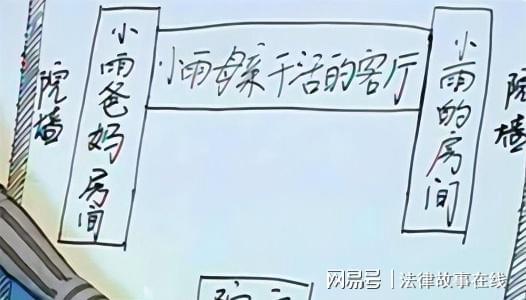 院墙
小雨爸妈房间
小雨母亲干活的客厅
小雨的房间
院墙
院
网易号 法律故事在线